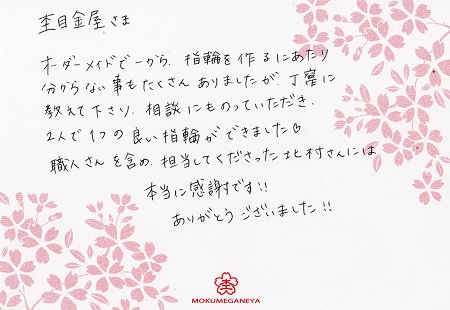 杢目金屋さま
オーダーメイドで一から、指輪を作るにあたり
分からない事もたくさんありましたが、丁寧に
教えて下さり、相談にものっていただき、
2人で1つの良い指輪ができました
職人さんを含め、担当してくださった北村さんには
本当に感謝です!!
ありがとうございました!!
杢
MOKUMEGANEYA